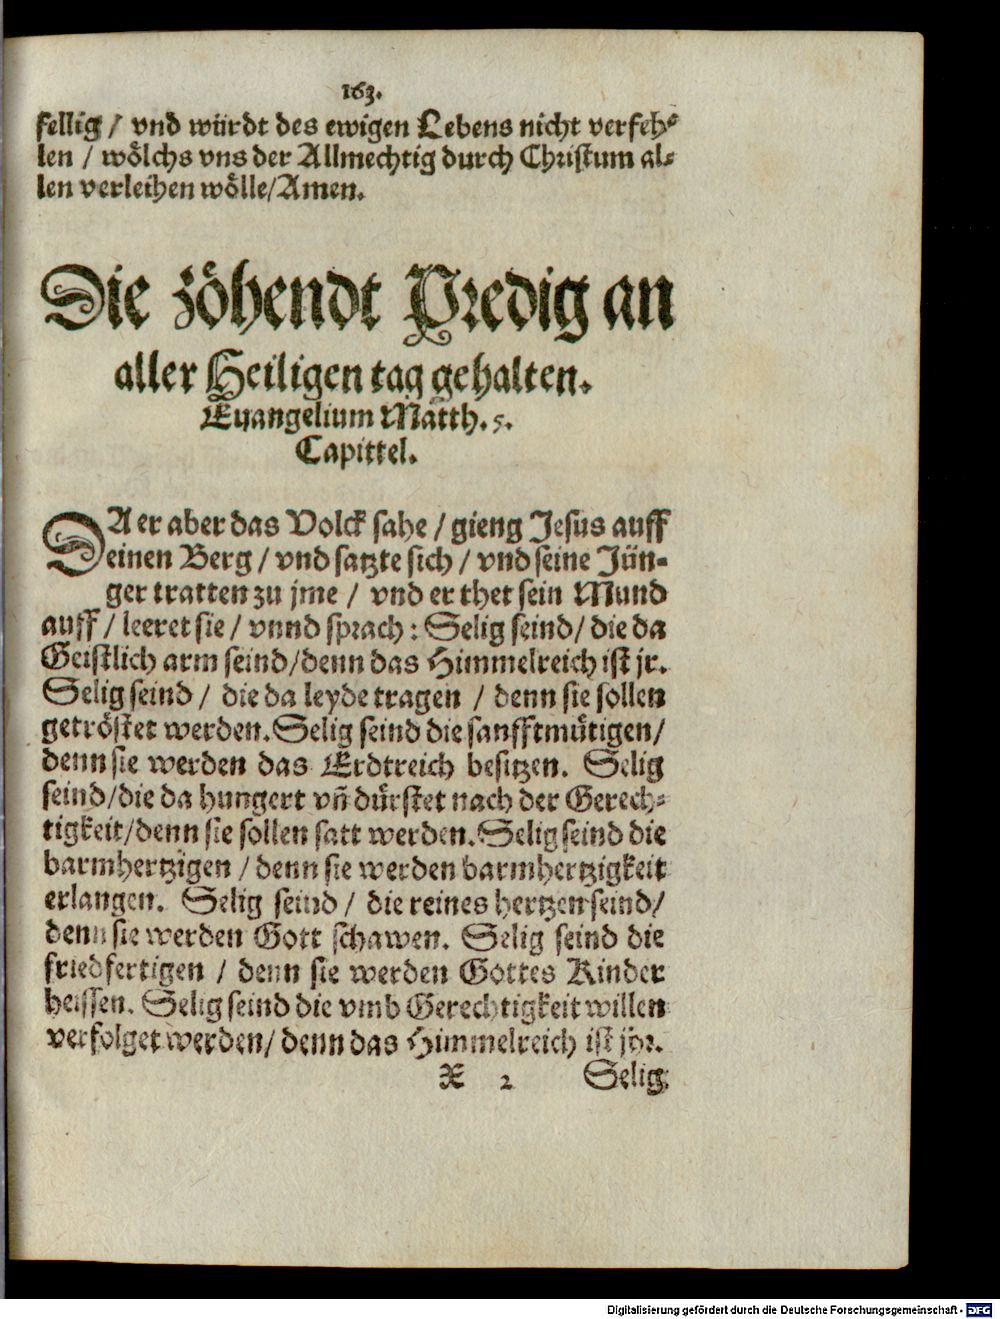 163.
fellig / vnd würdt des ewigen Lebens nicht verfeh-
len / wölchs vns der Allmechtig durch Christum al-
len verleihen wölle/Amen.
Die zöhendt Predig an
aller Heiligen tag gehalten.
Euangelium Matth. 5.
Capittel.
DA er aber das Volck sahe / gieng Jesus auff
einen Berg / vnd satzte sich / vnd seine Jün-
ger tratten zu jme / vnd er thet sein Mund
auff / leeret sie / vnnd sprach : Selig seind / die da
Geistlich arm seind/denn das Himmelreich ist jr.
Selig seind / die da leyde tragen / denn sie sollen
getröstet werden. Selig seind die sanfftmütigen/
denn sie werden das Erdtreich besitzen. Selig
seind/die da hungert vñ dürstet nach der Gerech-
tigkeit/denn sie sollen satt werden. Selig seind die
barmhertzigen / denn sie werden barmhertzigkeit
erlangen. Selig seind / die reines hertzen seind/
denn sie werden Gott schawen. Selig seind die
friedfertigen / denn sie werden Gottes Kinder
heissen. Selig seind die vmb Gerechtigkeit willen
verfolget werden/ denn das Himmelreich ist jhr.
X 2 Selig
Digitalisierung gefördert durch die Deutsche Forschungsgemeinschaft - DFG